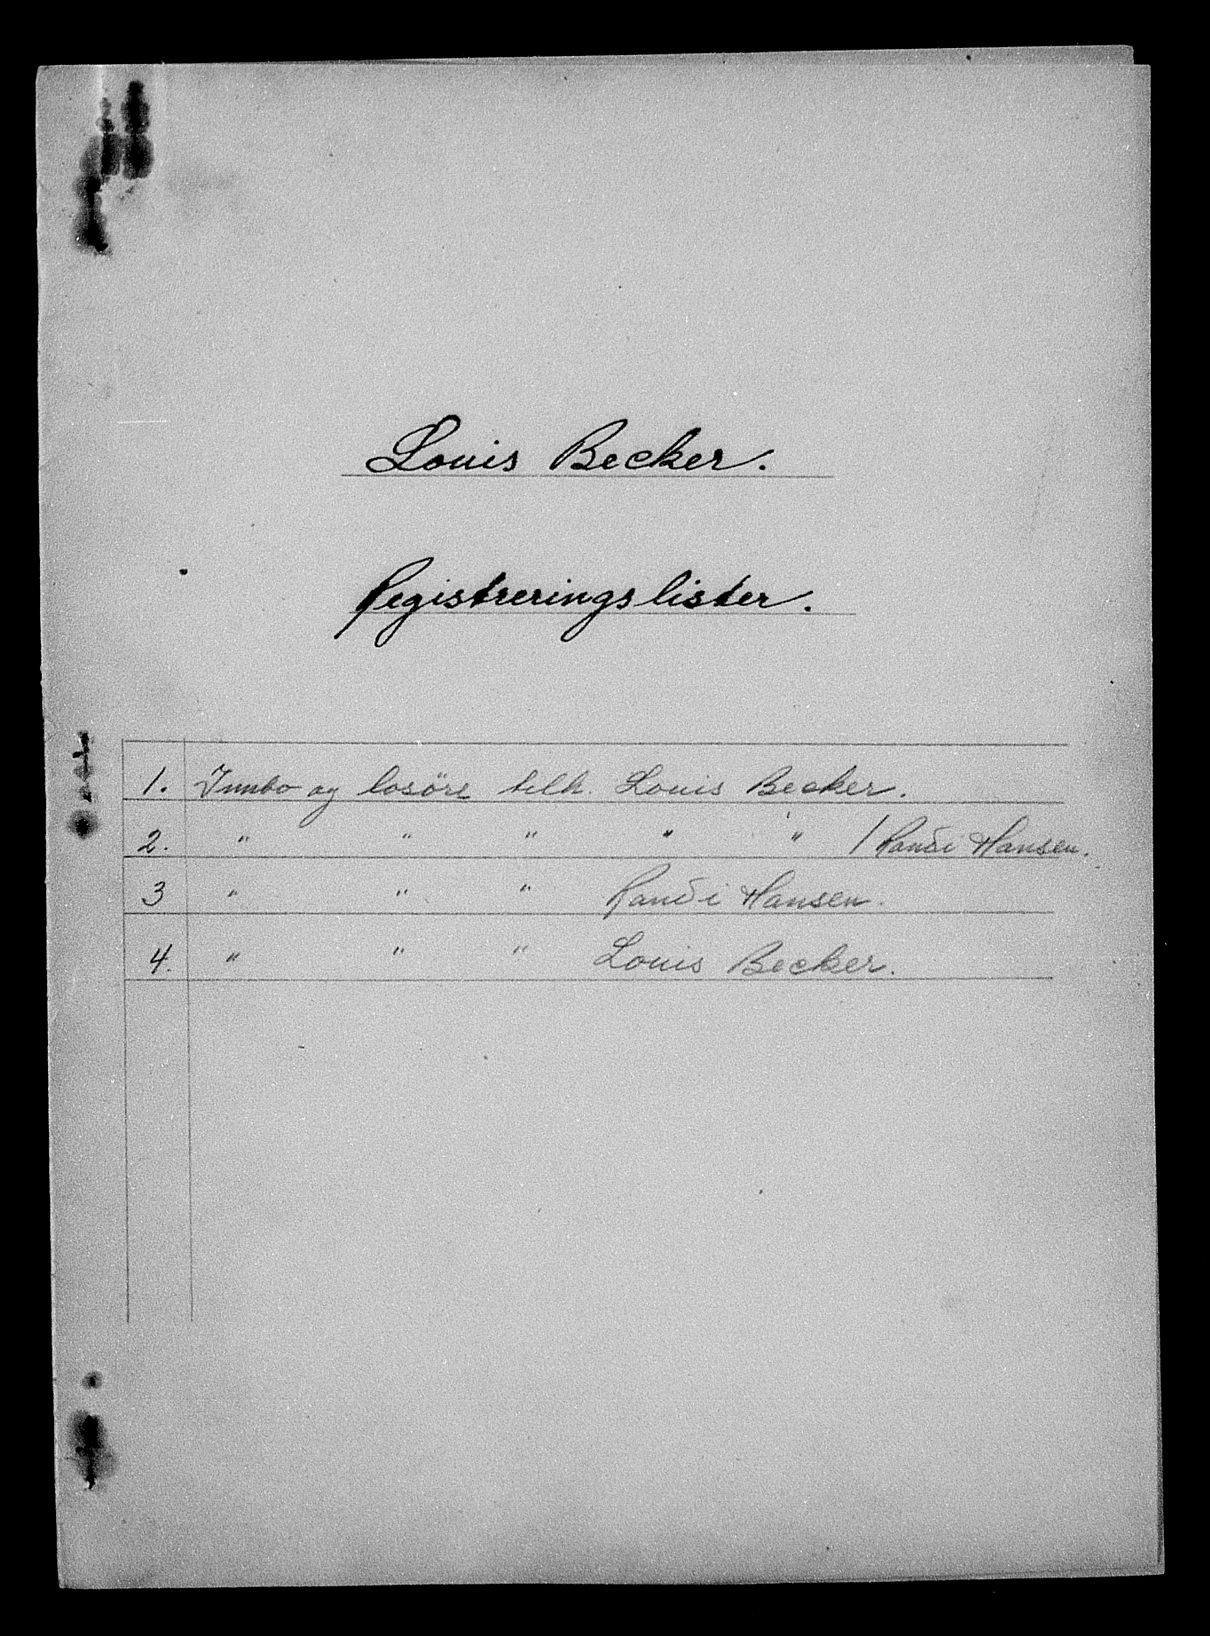 Louis Becker.
Registreringslister.
1. Innbo og losöre tilh. Louis Becker.
2. " " " " " / Randi Hansen.
3 " " " Randi Hansen.
4. " " " Louis Becker.